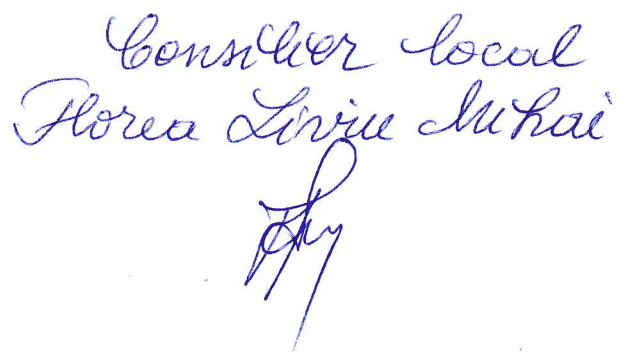 Consilier local
Florea Liviu Mihai